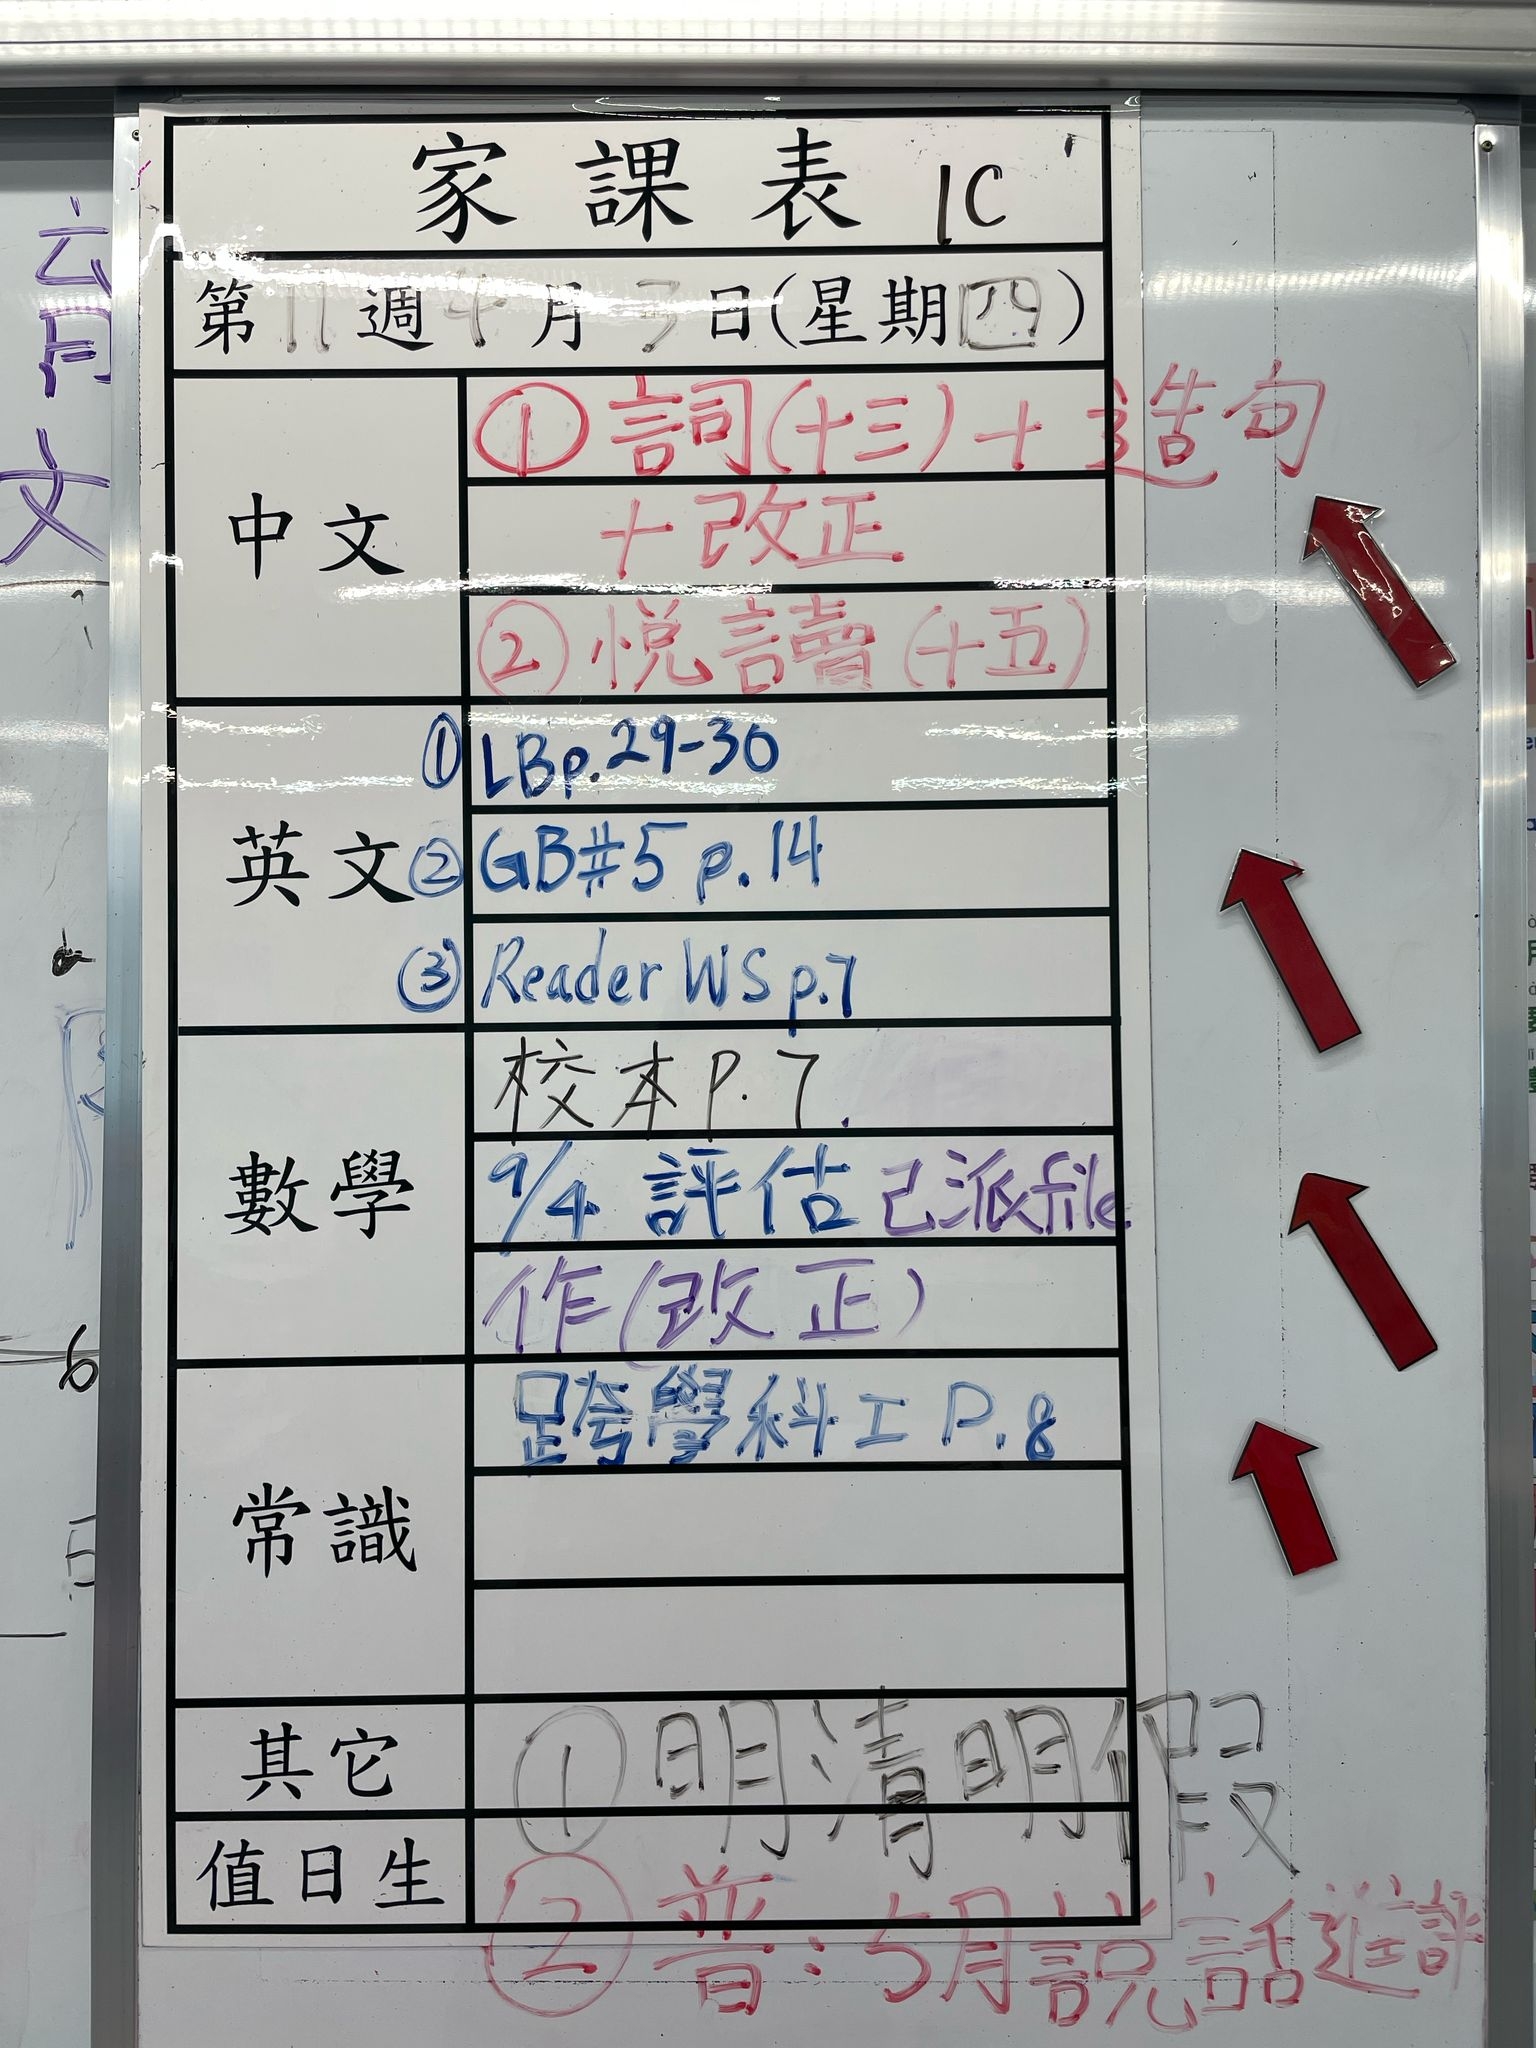 家課表 1C
第11週4月3日(星期四)
中文
①詞(十三)+造句
+改正
②悅讀(十五)
英文
①LBp.29-30
②GB#5 p.14
③Reader WS p.7
數學
校本P.7.
9/4 評估 己派file.
作(改正)
常識
跨學科工P.8
其它
①明清明假
值日生
②普:5月說話進評
育
文
6
5